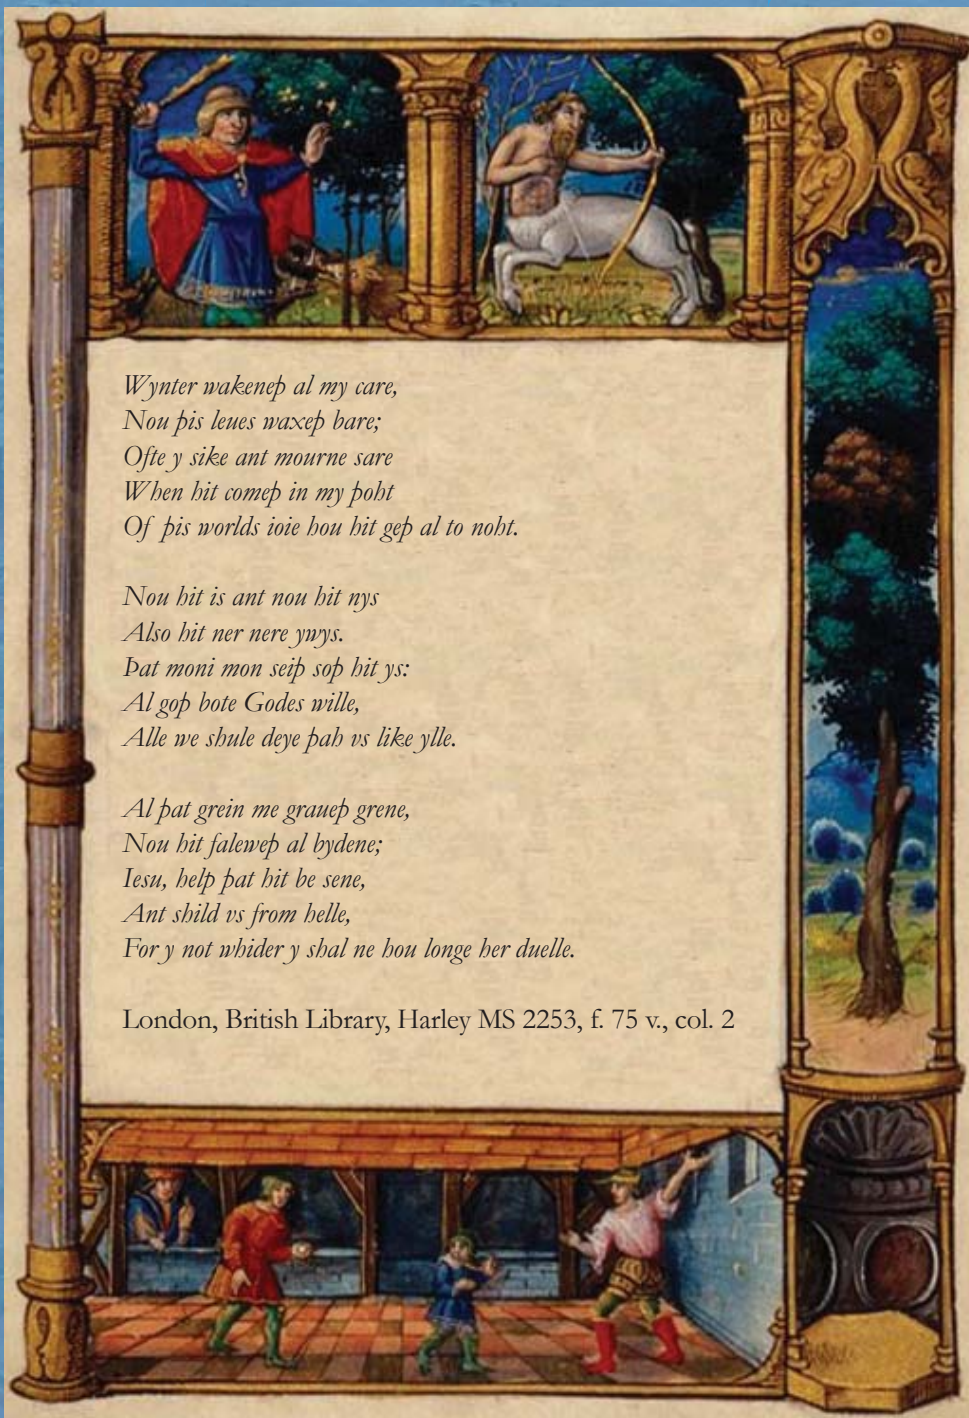 Wynter wakeneþ al my care,
Nou þis leues waxeþ bare;
Ofte y sike ant mourne sare
When hit comeþ in my þoht
Of þis worlds ioie hou hit geþ al to noht.

Nou hit is ant nou hit nys
Also hit ner nere ywys.
Þat moni mon seiþ soþ hit ys:
Al goþ bote Godes wille,
Alle we shule deye þah vs like ylle.

Al þat grein me graueþ grene,
Nou hit faleweþ al bydene;
Iesu, help þat hit be sene,
Ant shild vs from helle,
For y not whider y shal ne hou longe her duelle.

London, British Library, Harley MS 2253, f. 75 v., col. 2